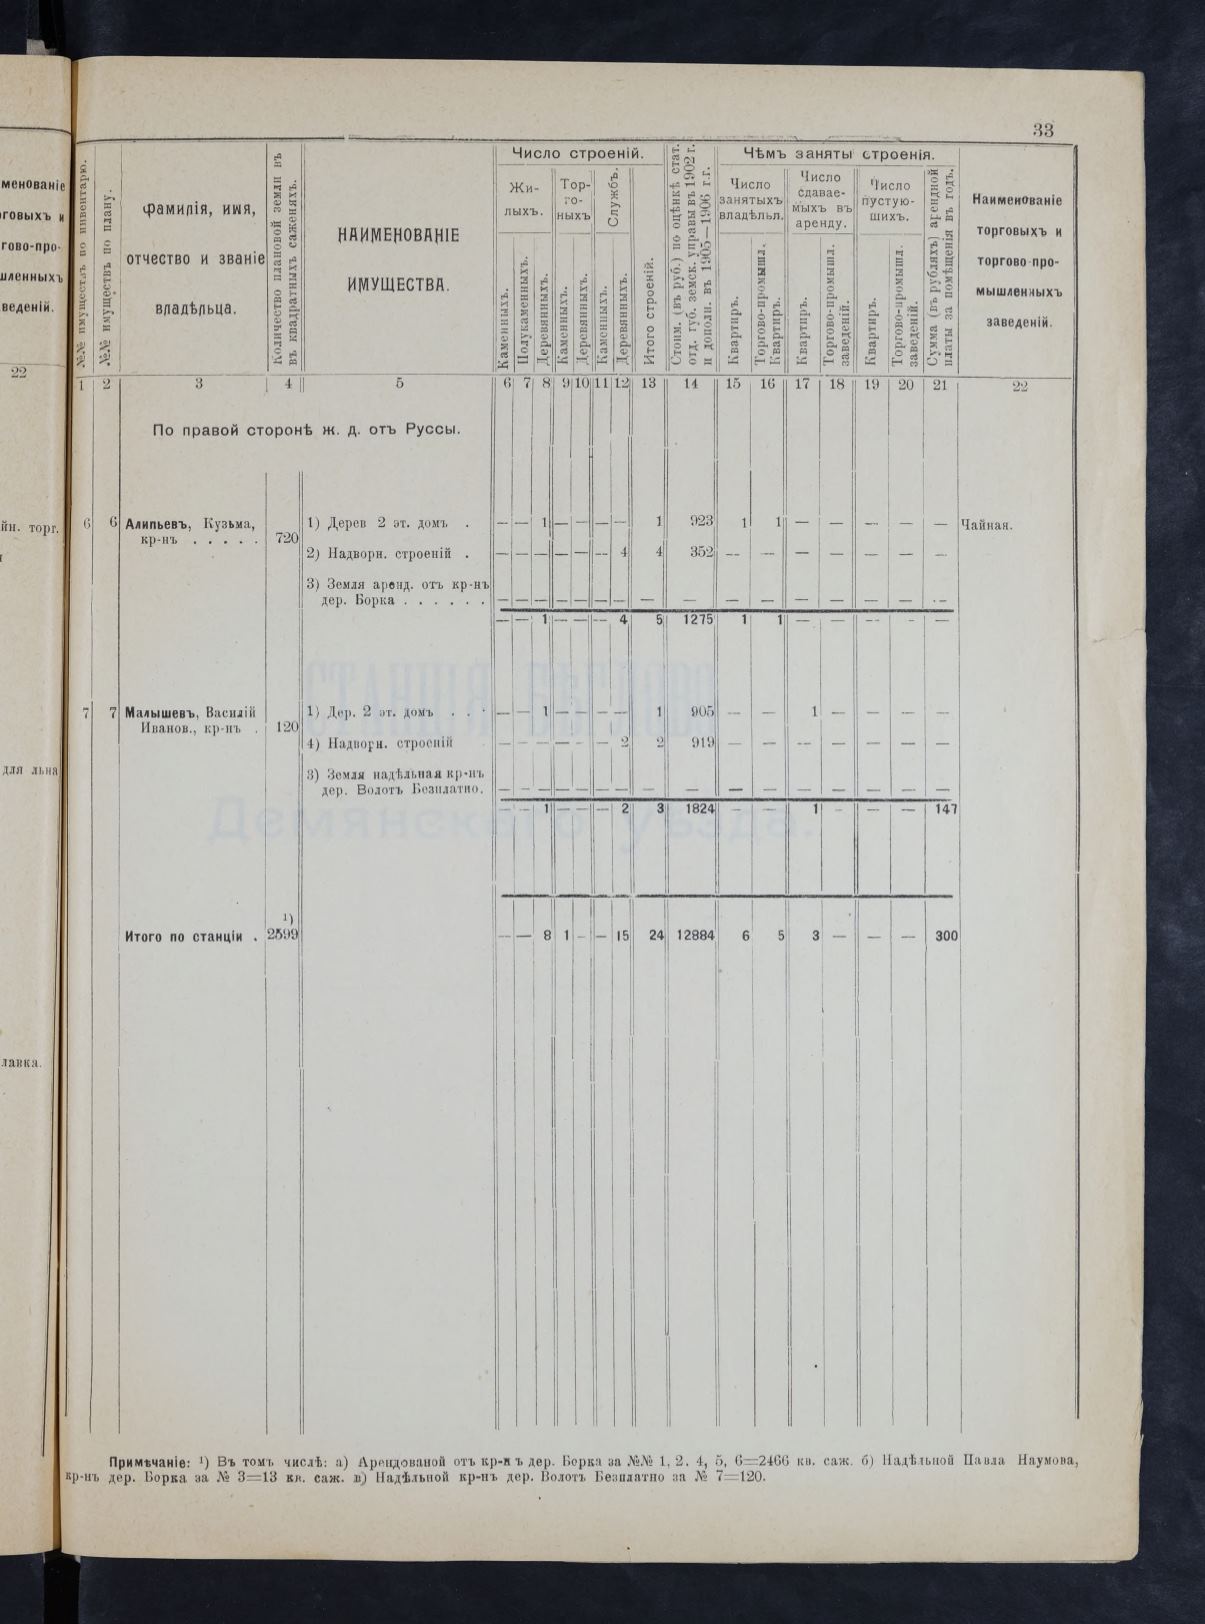 33
менованіе
говыхъ и
гово-про-
шленныхъ
веденій.
22
йн. торг.
для льна
лавка.
№№ имуществъ по инвентарю.
№№ имуществъ по плану.
Фамилія, имя,
отчество и званіе
владѣльца.
Количество плановой земли въ
въ квадратныхъ саженяхъ.
НАИМЕНОВАНІЕ
ИМУЩЕСТВА.
Число строеній.
Жи-
лыхъ.
Тор-
го-
ныхъ
Службъ.
Каменныхъ.
Полукаменныхъ.
Деревянныхъ.
Каменныхъ.
Деревянныхъ.
Каменныхъ.
Деревянныхъ.
Итого строеній.
Стоим. (въ руб.) по оцѣнкѣ стат.
отд. губ. земск. управы въ 1902 г.
и дополн. въ 1905—1906 г.г.
Чѣмъ заняты строенія.
Число
занятыхъ
владѣльл.
Число
сдавае-
мыхъ въ
аренду.
Число
пустую-
шихъ.
Квартиръ.
Торгово-промышл.
Квартиръ.
Квартиръ.
Торгово-промышл.
заведеній.
Квартиръ.
Торгово-промышл.
заведеній.
Сумма (въ рубляхъ) арендной
платы за помѣщенія въ годъ.
Наименованіе
торговыхъ и
торгово-про-
мышленныхъ
заведеній.
1 2 3 4 5 6 7 8 9 10 11 12 13 14 15 16 17 18 19 20 21 22
По правой сторонѣ ж. д. отъ Руссы.
6 6 Алипьевъ, Кузьма, 1) Дерев 2 эт. домъ . — — 1 — — — — 1 923 1 1 — — — — — Чайная.
кр-нъ . . . . . 720
2) Надворн. строеній . — — — — — — 4 4 352 — — — — — — —
3) Земля аренд. отъ кр-нъ
дер. Борка . . . . . . — — — — — — — — — — — — — — — —
— — 1 — — — 4 5 1275 1 1 — — — — —
7 7 Малышевъ, Василій 1) Дер. 2 эт. домъ . . . — — 1 — — — — 1 905 — — 1 — — — —
Иванов., кр-нъ . 120
4) Надворн. строеній — — — — — — 2 2 919 — — — — — — —
3) Земля надѣльная кр-нъ
дер. Волотъ Безплатно. — — — — — — — — — — — — — — — —
— — 1 — — — 2 3 1824 — — 1 — — — 147
1)
Итого по станціи . 2599 — — 8 1 — — 15 24 12884 6 5 3 — — — 300
Примѣчаніе: 1) Въ томъ числѣ: а) Арендованой отъ кр-нъ дер. Борка за №№ 1, 2. 4, 5, 6=2466 кв. саж. б) Надѣльной Павла Наумова,
кр-нъ дер. Борка за № 3=13 кв. саж. в) Надѣльной кр-нъ дер. Волотъ Безплатно за № 7=120.